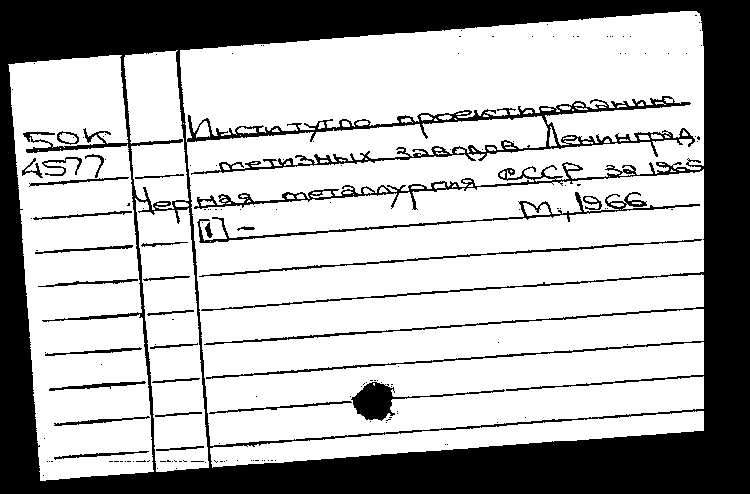 50К Институт по проектированию
4577 метизных заводов. Ленинград.
Черная металлургия СССР за 1965
[1] - М., 1966.